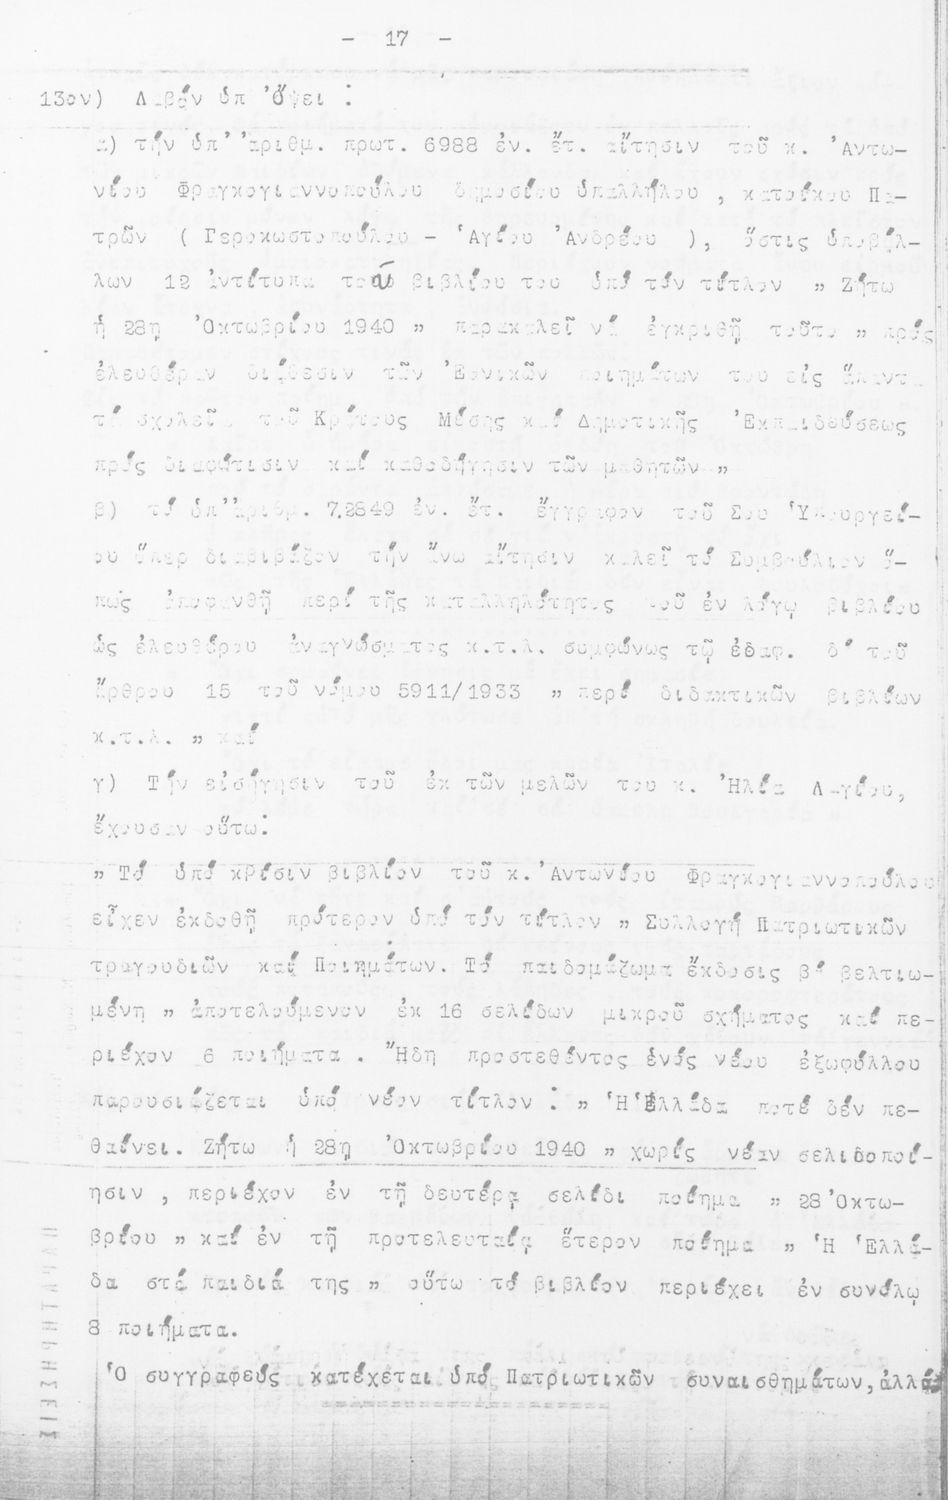 - 17 -
13ον) Λαβόν ὑπ' ὄψει :
α) τήν ὑπ' ἀριθμ. πρωτ. 6988 ἐν. ἔτ. αἴτησιν τοῦ κ. Ἀντω-
νίου Φραγκογιαννοπούλου δημοσίου ὑπαλλήλου , κατοίκου Πα-
τρῶν ( Γεροκωστοπούλου - Ἁγίου Ἀνδρέου ), ὅστις ὑποβάλ-
λων 12 ἀντίτυπα τοῦ βιβλίου του ὑπό τόν τίτλον " Ζήτω
ἡ 28η Ὀκτωβρίου 1940 " παρακαλεῖ νά ἐγκριθῇ τοῦτο " πρός
ἐλευθέραν διάθεσιν τῶν Ἐθνικῶν ποιημάτων του εἰς ἅπαντα
τά σχολεῖα τοῦ Κράτους Μέσης καί Δημοτικῆς Ἐκπαιδεύσεως
πρός διαφώτισιν καί καθοδήγησιν τῶν μαθητῶν "
β) τό ὑπ' ἀριθμ. 72849 ἐν. ἔτ. ἔγγραφον τοῦ Σου Ὑπουργεί-
ου ὅπερ διαβιβάζον τήν ἄνω αἴτησιν καλεῖ τό Συμβούλιον ὅ-
πως ἀποφανθῇ περί τῆς καταλληλότητος τοῦ ἐν λόγῳ βιβλίου
ὡς ἐλευθέρου ἀναγνώσματος κ.τ.λ. συμφώνως τῷ ἐδαφ. δ' τοῦ
ἄρθρου 15 τοῦ νόμου 5911/1933 " περί διδακτικῶν βιβλίων
κ.τ.λ. " καί
γ) Τήν εἰσήγησιν τοῦ ἐκ τῶν μελῶν του κ. Ἠλία Λαγίου,
ἔχουσαν οὕτω:
" Τό ὑπό κΡίσιν βιβλίον τοῦ κ. Ἀντωνίου Φραγκογιαννοπούλου
εἶχεν ἐκδοθῆ πρότερον ὑπό τόν τίτλον " Συλλογή Πατριωτικῶν
τραγουδιῶν καί Ποιημάτων. Τό παιδομάζωμα ἔκδοσις β' βελτιω-
μένη " ἀποτελούμενον ἐκ 16 σελίδων μικροῦ σχήματος καί πε-
ριέχον 6 ποιήματα . Ἤδη προστεθέντος ἑνός νέου ἐξωφύλλου
παρουσιάζεται ὑπό νέον τίτλον : " Ἡ Ἑλλάδα ποτέ δέν πε-
θαίνει. Ζήτω ἡ 28η Ὀκτωβρίου 1940 " χωρίς νέαν σελιδοποί-
ησιν , περιέχον ἐν τῇ δευτέρᾳ σελίδι ποίημα " 28 Ὀκτω-
βρίου " καί ἐν τῇ προτελευταίᾳ ἕτερον ποίημα " Ἡ Ἑλλά-
δα στά παιδιά της " οὕτω τό βιβλίον περιέχει ἐν συνόλῳ
8 ποιήματα.
Ὁ συγγραφεύς κατέχεται ὑπό Πατριωτικῶν συναισθημάτων, ἀλλά